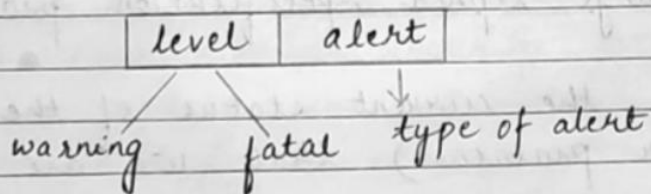 level alert
warning fatal type of alert